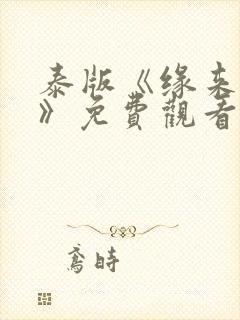 泰版《缘来
》免費觀看
鸢时